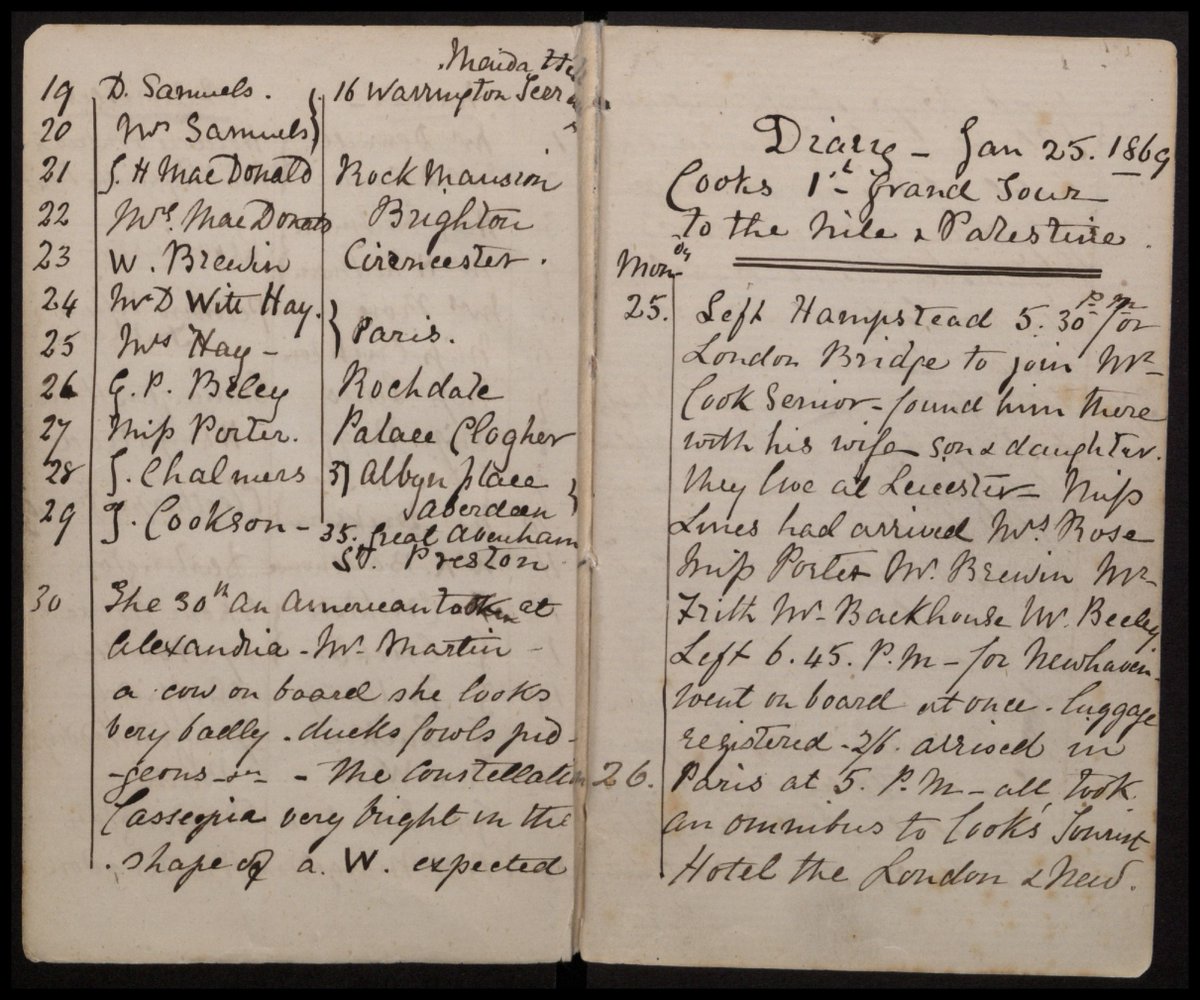 Maida Hill
19 D. Samuels. 16 Warrington Terr
20 Mrs Samuels
21 J. H MacDonald Rock Mansion
22 Mrs. MacDonald Brighton
23 W. Brewin Cirencester.
24 Mr D Witt Hay.
25 Mrs Hay - Paris.
26 G. P. Beley Rochdale
27 Miss Porter. Palace Clogher
28 J. Chalmers 37 Albyn place
Aberdeen
29 T. Cookson - 35. Great Avenham
St. Preston
30 The 30th an American took at
Alexandria - Mr. Martin -
a cow on board she looks
very badly. ducks fowls pid-
-geons - The Constellation
Casseopia very bright in the
shape of a. W. expected
Diary - Jan 25. 1869
Cooks 1st Grand Tour
to the Nile & Palestine.
Monday
25. Left Hampstead 5.30 P.M for
London Bridge to join Mr
Cook Senior - found him there
with his wife son & daughter.
they live at Leicester - Miss
Lines had arrived Mrs Rose
Miss Porter Mr. Brewin Mr
Frith Mr. Backhouse Mr. Beeley
Left 6.45. P.M - for Newhaven.
went on board at once. luggage
registered - 2/6. arrived in
26. Paris at 5. P.M - all took
an omnibus to Cook's Tourist
Hotel the London & New.